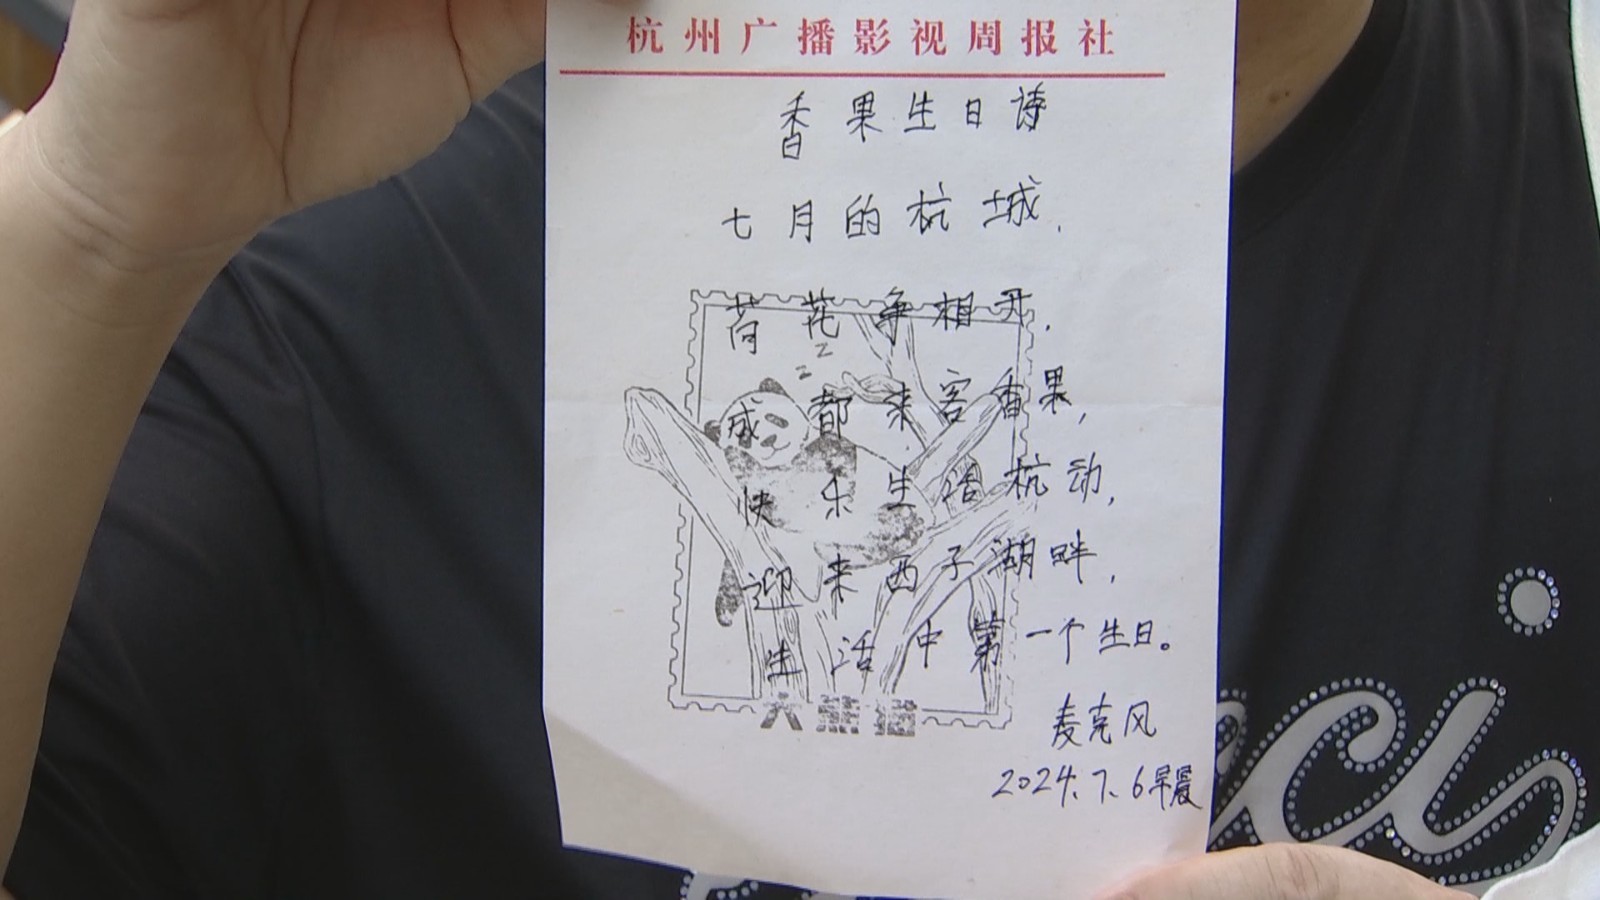 杭州广播影视周报社
香果生日诗
七月的杭城,
荷花争相开,
成都来客香果,
快乐生活杭动,
迎来西子湖畔,
生活中第一个生日。
大熊猫
麦克风
2024.7.6早晨
zz